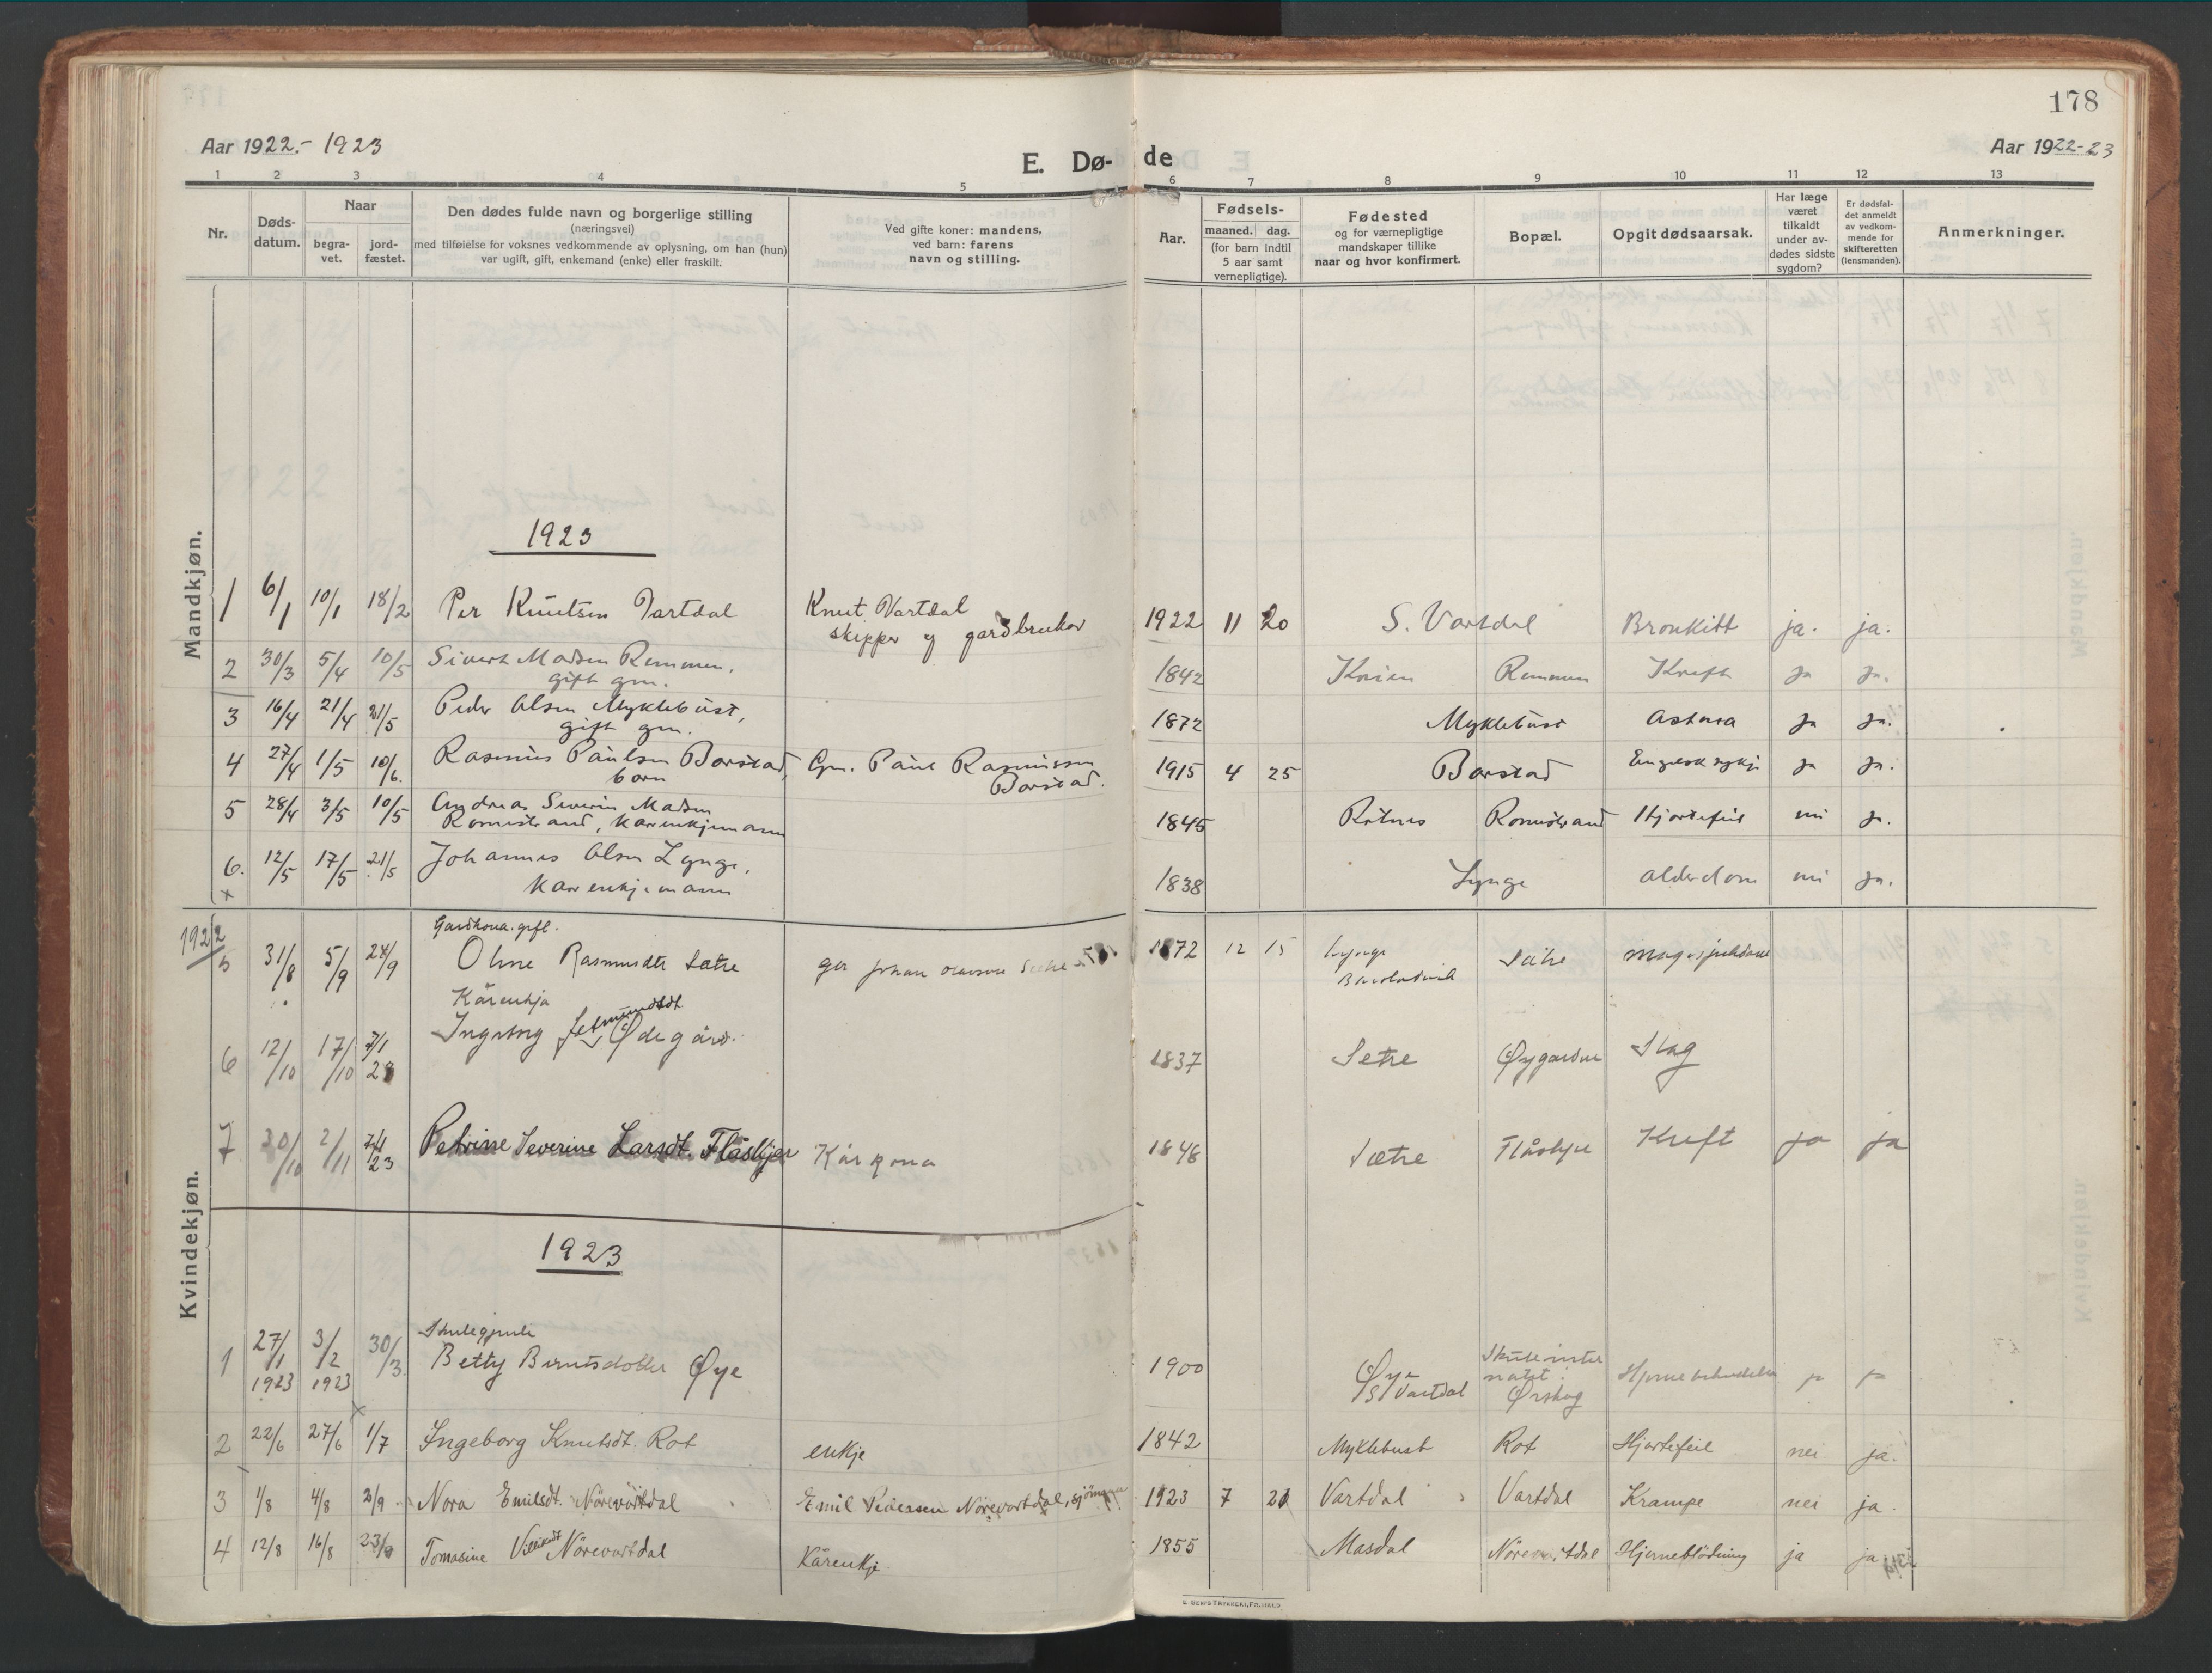 178
Aar 1922.- 1923
E. Dø- de
Aar 1922-23
1 2 3 4 5 6 7 8 9 10 11 12 13
Nr.
Døds-
datum.
Naar
begra-
vet.
jord-
fæstet.
Den dødes fulde navn og borgerlige stilling
(næringsvei)
med tilføielse for voksnes vedkommende av oplysning, om han (hun)
var ugift, gift, enkemand (enke) eller fraskilt.
Ved gifte koner: mandens,
ved barn: farens
navn og stilling.
Aar.
Fødsels-
maaned. dag.
(for barn indtil
5 aar samt
vernepligtige).
Fødested
og for værnepligtige
mandskaper tillike
naar og hvor konfirmert.
Bopæl.
Opgit dødsaarsak.
Har læge
været
tilkaldt
under av-
dødes sidste
sygdom?
Er dødsfal-
det anmeldt
av vedkom-
mende for
skifteretten
(lensmanden).
Anmerkninger.
Mandkjøn.
1923
1 6/1 10/1 18/2 Per Knutsen Vartdal Knut Vartdal
skipper og gardbruker 1922 11 20 S. Vartdal Bronkitt ja. ja.
2 30/3 5/4 10/5 Sivert Madsen Remmen,
gift gm. 1842 Remmen Kreft ja ja.
3 16/4 21/4 21/5 Peder Olsen Myklebust,
gift gm. 1872 Myklebust Astma ja ja.
4 27/4 1/5 10/6. Rasmus Paulsen Barstad,
born Gm. Paul Rasmussen
Barstad. 1915 4 25 Barstad Engelsk sykje ja ja.
5 28/4 3/5 10/5 Andreas Severin Madsen
Romestrand, Karenkjemann 1845 Romestrand Hjartefeil nei ja.
6. 12/5 17/5 21/5 Johannes Olsen Lynge,
Karenkjemann 1838 Lynge Alderdom nei ja.
Kvindekjøn.
1922
Gardkona. gift.
5 31/8 5/9 24/9 Oline Rasmusdtr Sætre 1872 12 15 Lynge Sætre Magesjukdom
Kårenkja
6 12/10 17/10 7/1 23 Ødegård. 1837 Setre Øygarden Slag
7 30/10 2/11 23 Petrine Severine Larsdt. Flåskjer Kårkona 1848 Sætre Flåskjer Kreft ja ja
1923
Skulegjente
1 27/1 1923 3/2 1923 30/3. Betty Berntsdotter Øye 1900 Øye
S Vartdal Skuleinter
natet
Ørskog ja ja
2 22/6 27/6 1/7 Ingeborg Knutsdt. Rot enkje 1842 Myklebust Rot Hjartefeil nei ja.
3 1/8 4/8 2/9 Nora Emilsdt. Nörevartdal Emil Pedersen Nörevartdal, sjömann 1923 7 21 Vartdal Vartdal Krampe nei ja.
4 12/8 16/8 23/9 Tomasine Nörevartdal Kårenkje 1855 Masdal Nörevartdal Hjerneblödning ja ja
E. SEM'S TRYKKERI, FR.HALD